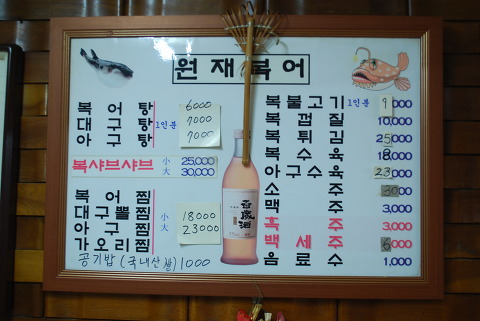 원재복어
복어탕 6000
대구탕 1인분 7000
아구탕 7000
복샤브샤브 小 25,000
大 30,000
복어찜
대구뽈찜 小 18000
아구찜 大 23000
가오리찜
공기밥 (국내산쌀) 1000
복불고기 1인분 9,000
복껍질 10,000
복튀김 25,000
복수육
아구수육
소주
맥주 3,000
흑주 3,000
백세주 6,000
음료수 1,000
百歲酒